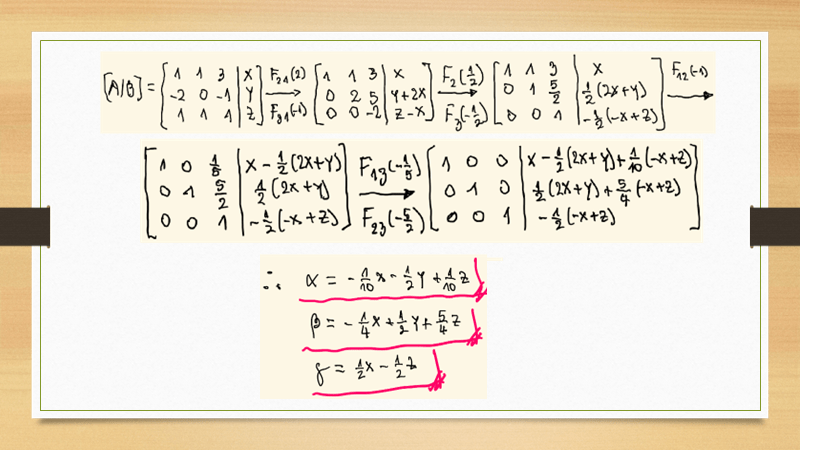 [A|B] = [1 1 3 | x; -2 0 -1 | y; 1 1 1 | z] F₂₁(2) F₃₁(-1) → [1 1 3 | x; 0 2 5 | y+2x; 0 0 -2 | z-x] F₂(1/2) F₃(-1/2) → [1 1 3 | x; 0 1 5/2 | 1/2(2x+y); 0 0 1 | -1/2(-x+z)] F₁₂(-1) →
[1 0 1/5 | x - 1/2(2x+y); 0 1 5/2 | 1/2(2x+y); 0 0 1 | -1/2(-x+z)] F₁₃(-1/5) F₂₃(-5/2) → [1 0 0 | x - 1/2(2x+y) + 1/10(-x+z); 0 1 0 | 1/2(2x+y) + 5/4(-x+z); 0 0 1 | -1/2(-x+z)]
∴ α = -1/10x - 1/2y + 1/10z
β = -1/4x + 1/2y + 5/4z
γ = 1/2x - 1/2z